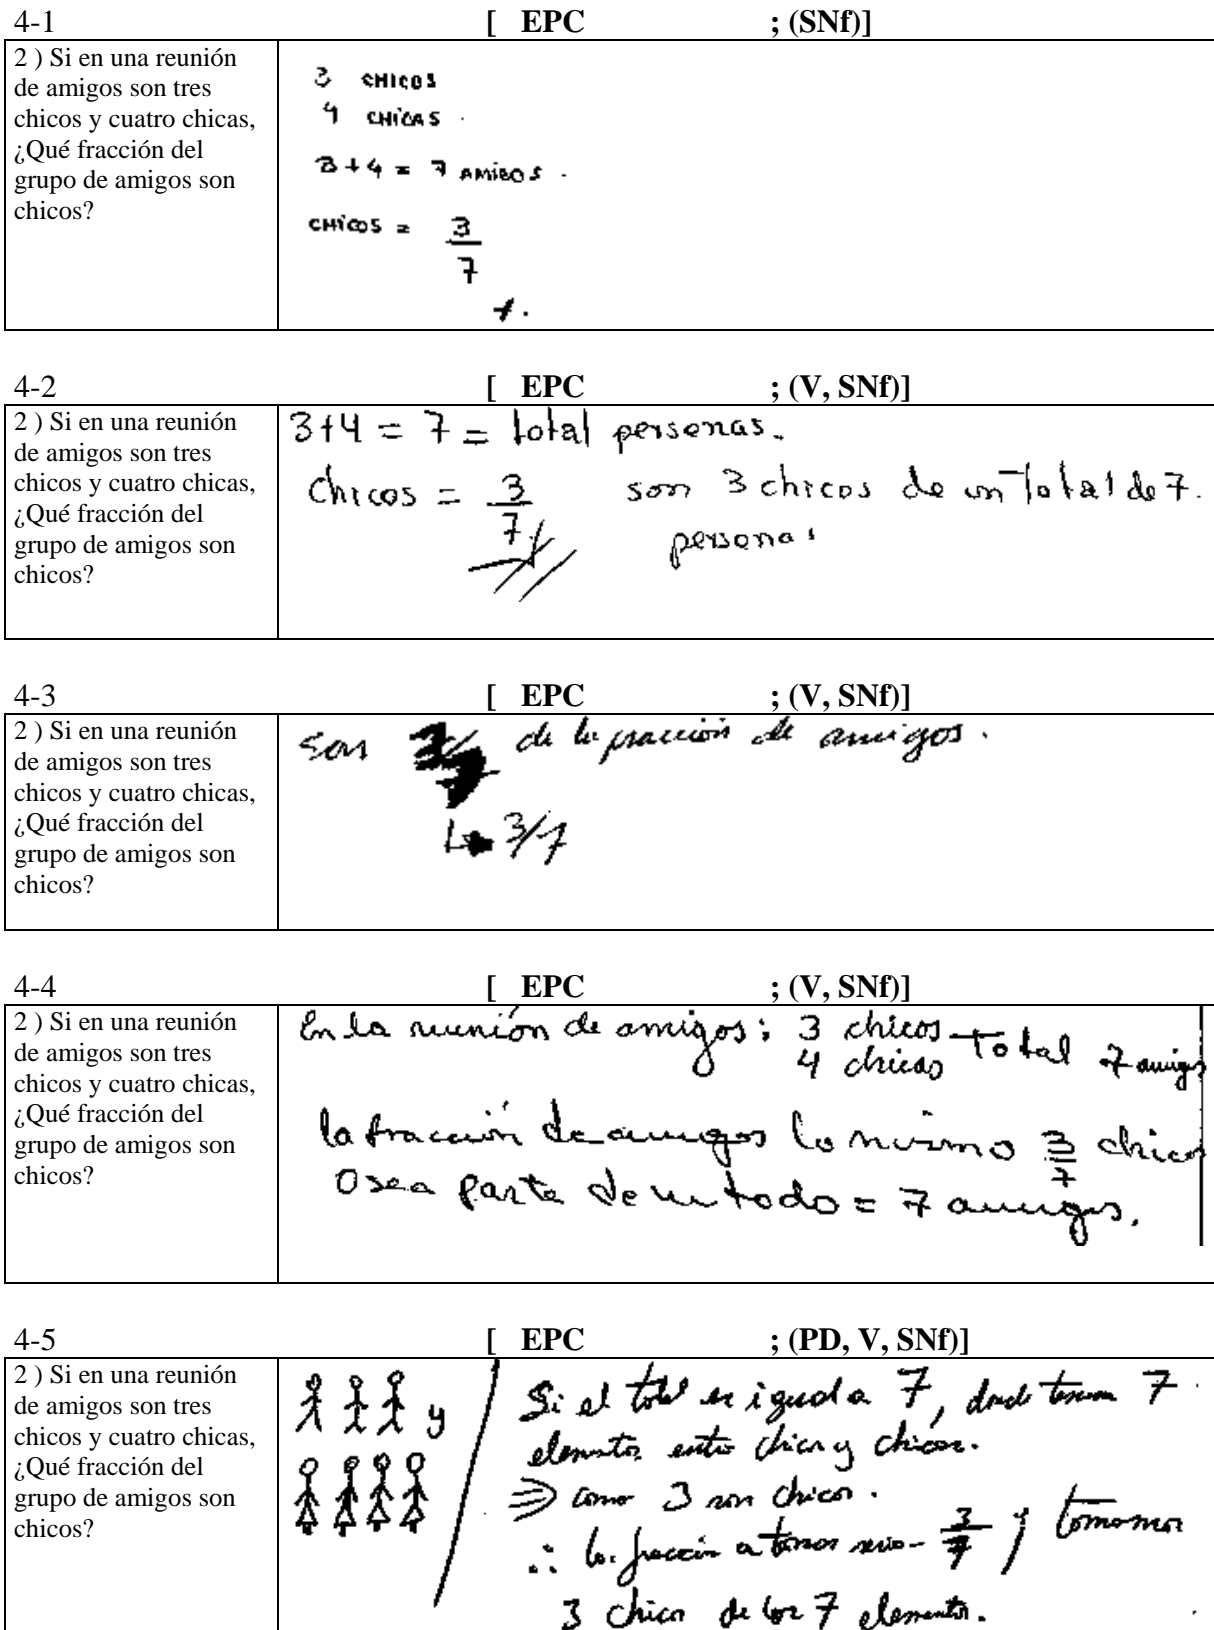 4-1 [ EPC ; (SNf)]
2 ) Si en una reunión
de amigos son tres
chicos y cuatro chicas,
¿Qué fracción del
grupo de amigos son
chicos?
3 CHICOS
4 CHICAS
3+4 = 7 AMIGOS.
CHICOS = 3/7
4-2 [ EPC ; (V, SNf)]
2 ) Si en una reunión
de amigos son tres
chicos y cuatro chicas,
¿Qué fracción del
grupo de amigos son
chicos?
3+4 = 7 = total personas.
Chicos = 3/7 son 3 chicos de un total de 7.
personas
4-3 [ EPC ; (V, SNf)]
2 ) Si en una reunión
de amigos son tres
chicos y cuatro chicas,
¿Qué fracción del
grupo de amigos son
chicos?
Son de la fracción de amigos.
3/7
4-4 [ EPC ; (V, SNf)]
2 ) Si en una reunión
de amigos son tres
chicos y cuatro chicas,
¿Qué fracción del
grupo de amigos son
chicos?
En la reunión de amigos: 3 chicos Total 7 amigos
4 chicas
la fracción de amigos lo mismo 3/7 chicos
Osea parte de un todo = 7 amigos.
4-5 [ EPC ; (PD, V, SNf)]
2 ) Si en una reunión
de amigos son tres
chicos y cuatro chicas,
¿Qué fracción del
grupo de amigos son
chicos?
y
Si el total es igual a 7, 7
elementos entre chicas y chicos.
⇒ como 3 son chicos.
∴ la fracción a tomar 3/7 y tomamos
3 chicos de los 7 elementos.